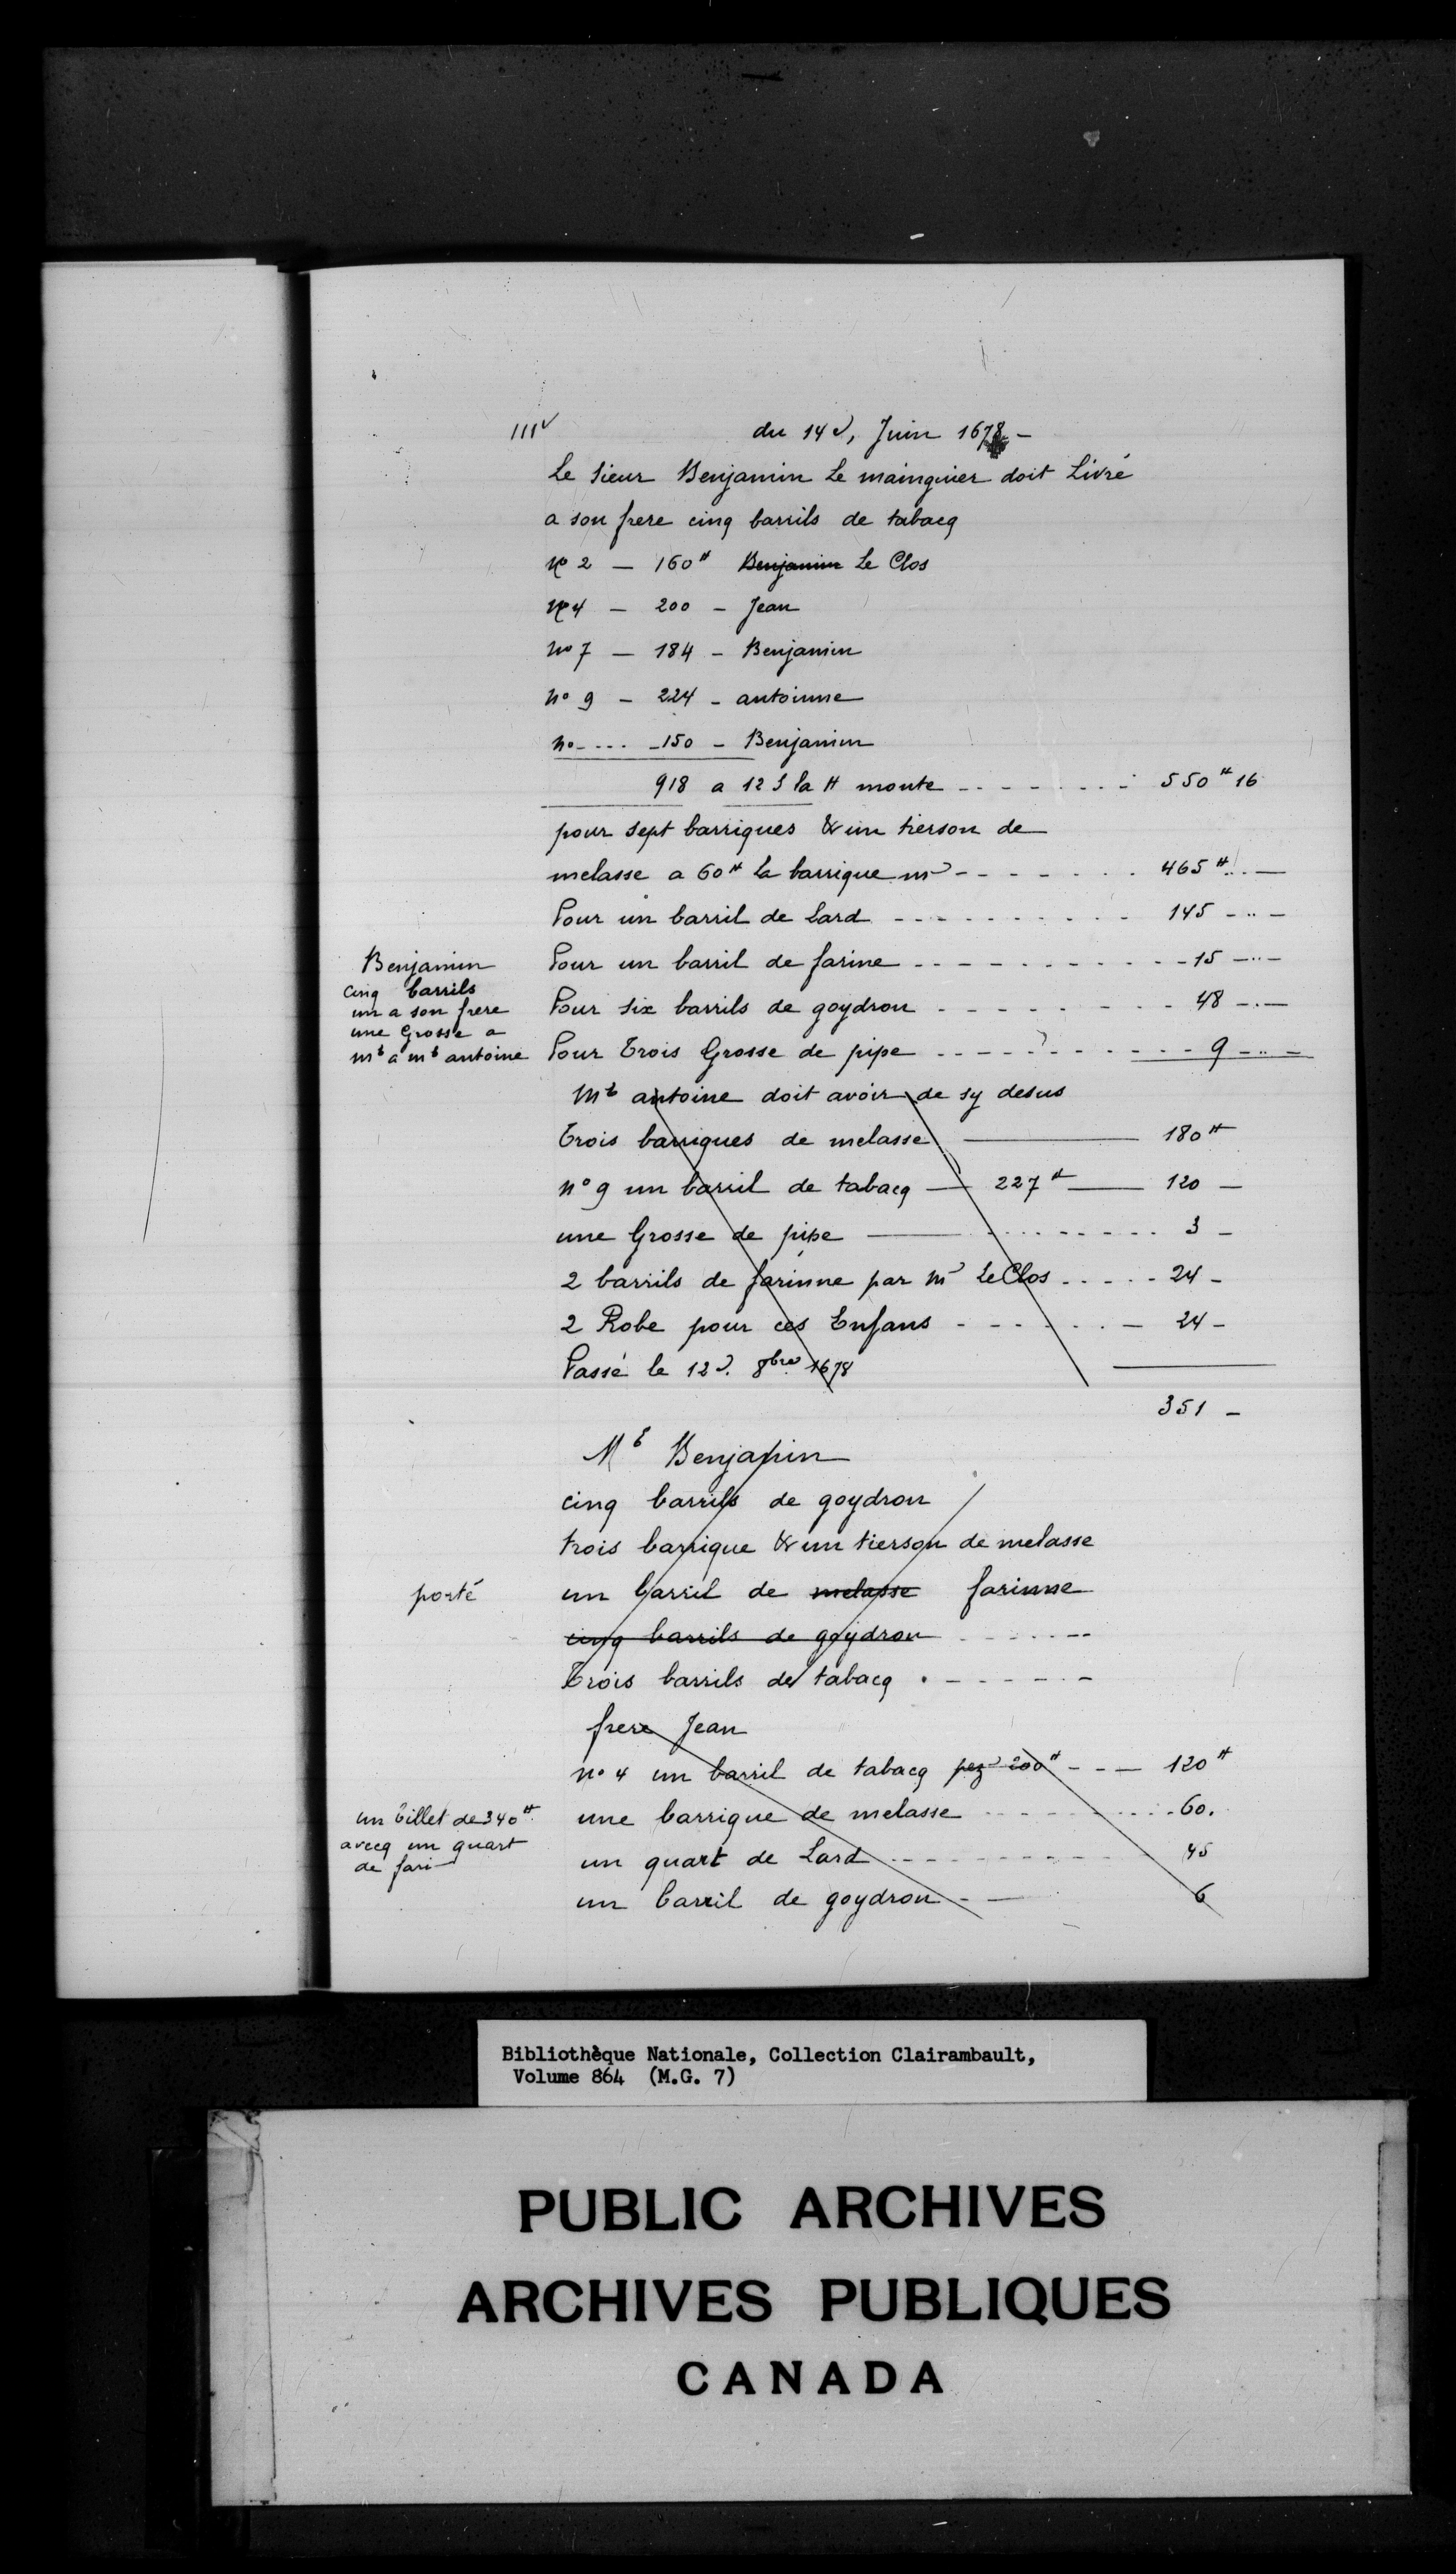 111v
du 14e, Juin 1678 -
Le Sieur Benjamin Le mainguier doit Livré
a son frere cinq barrils de tabacq
No 2 - 160# Benjamin Le Clos
No 4 - 200 - Jean
no 7 - 184 - Benjamin
no 9 - 224 - antoinne
no ---- 150 - Benjamin
918 a 12 s la # monte -------- 550# 16
pour sept barriques & un tierson de
melasse a 60# la barrique m ------- 465# .. -
Pour un barril de Lard ---------- 145 - .. -
Pour un barril de farine ------------ 15 - .. -
Pour six barrils de goydron -------- 48 - . -
Pour Trois Grosse de pipe ----------- 9 - .. -
Benjamin
cinq barrils
un a son frere
une Grosse a
mt a mt antoine
Mt antoine doit avoir de sy desus
Trois barriques de melasse — 180#
no 9 un barril de tabacq — 227# — 120 -
une Grosse de pipe — --------- 3 -
2 barrils de farinne par Mr Le Clos ----- 24 -
2 Robe pour ces Enfans ------- 24 -
Passé le 12e. 8bre 1678
351 -
Mt Benjamin
cinq barrils de goydron
trois barrique & un tierson de melasse
porté
un barril de melasse farinne
cinq barrils de goydron -------
Trois barrils de tabacq . ------
frere Jean
no 4 un barril de tabacq pez 200# --- 120#
une barrique de melasse ---------- 60.
un quart de Lard ----------- 45
un barril de goydron - — 6
un billet de 340#
avecq un quart
de fari—
Bibliothèque Nationale, Collection Clairambault,
Volume 864 (M.G. 7)
PUBLIC ARCHIVES
ARCHIVES PUBLIQUES
CANADA